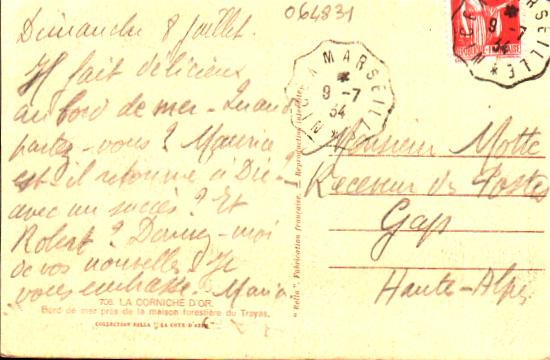 Dimanche 8 juillet.
Il fait délicieux
au bord de mer - Quand
partez-vous? Maurice
est-il retourné à Die -
avec un succès? Et
Robert? Donnez-moi
de vos nouvelles. Je
vous embrasse. Maria
708. LA CORNICHE D'OR.
Bord de mer près de la maison forestière du Trayas.
COLLECTION RELLA "LA COTE D'AZUR"
064831
NICE A MARSEILLE
9 -7
34
NICE A MARSEILLE
9 -7
34
"Rella" Fabrication française. - Reproduction interdite.
Monsieur Motte
Receveur des Postes
Gap
Hautes-Alpes